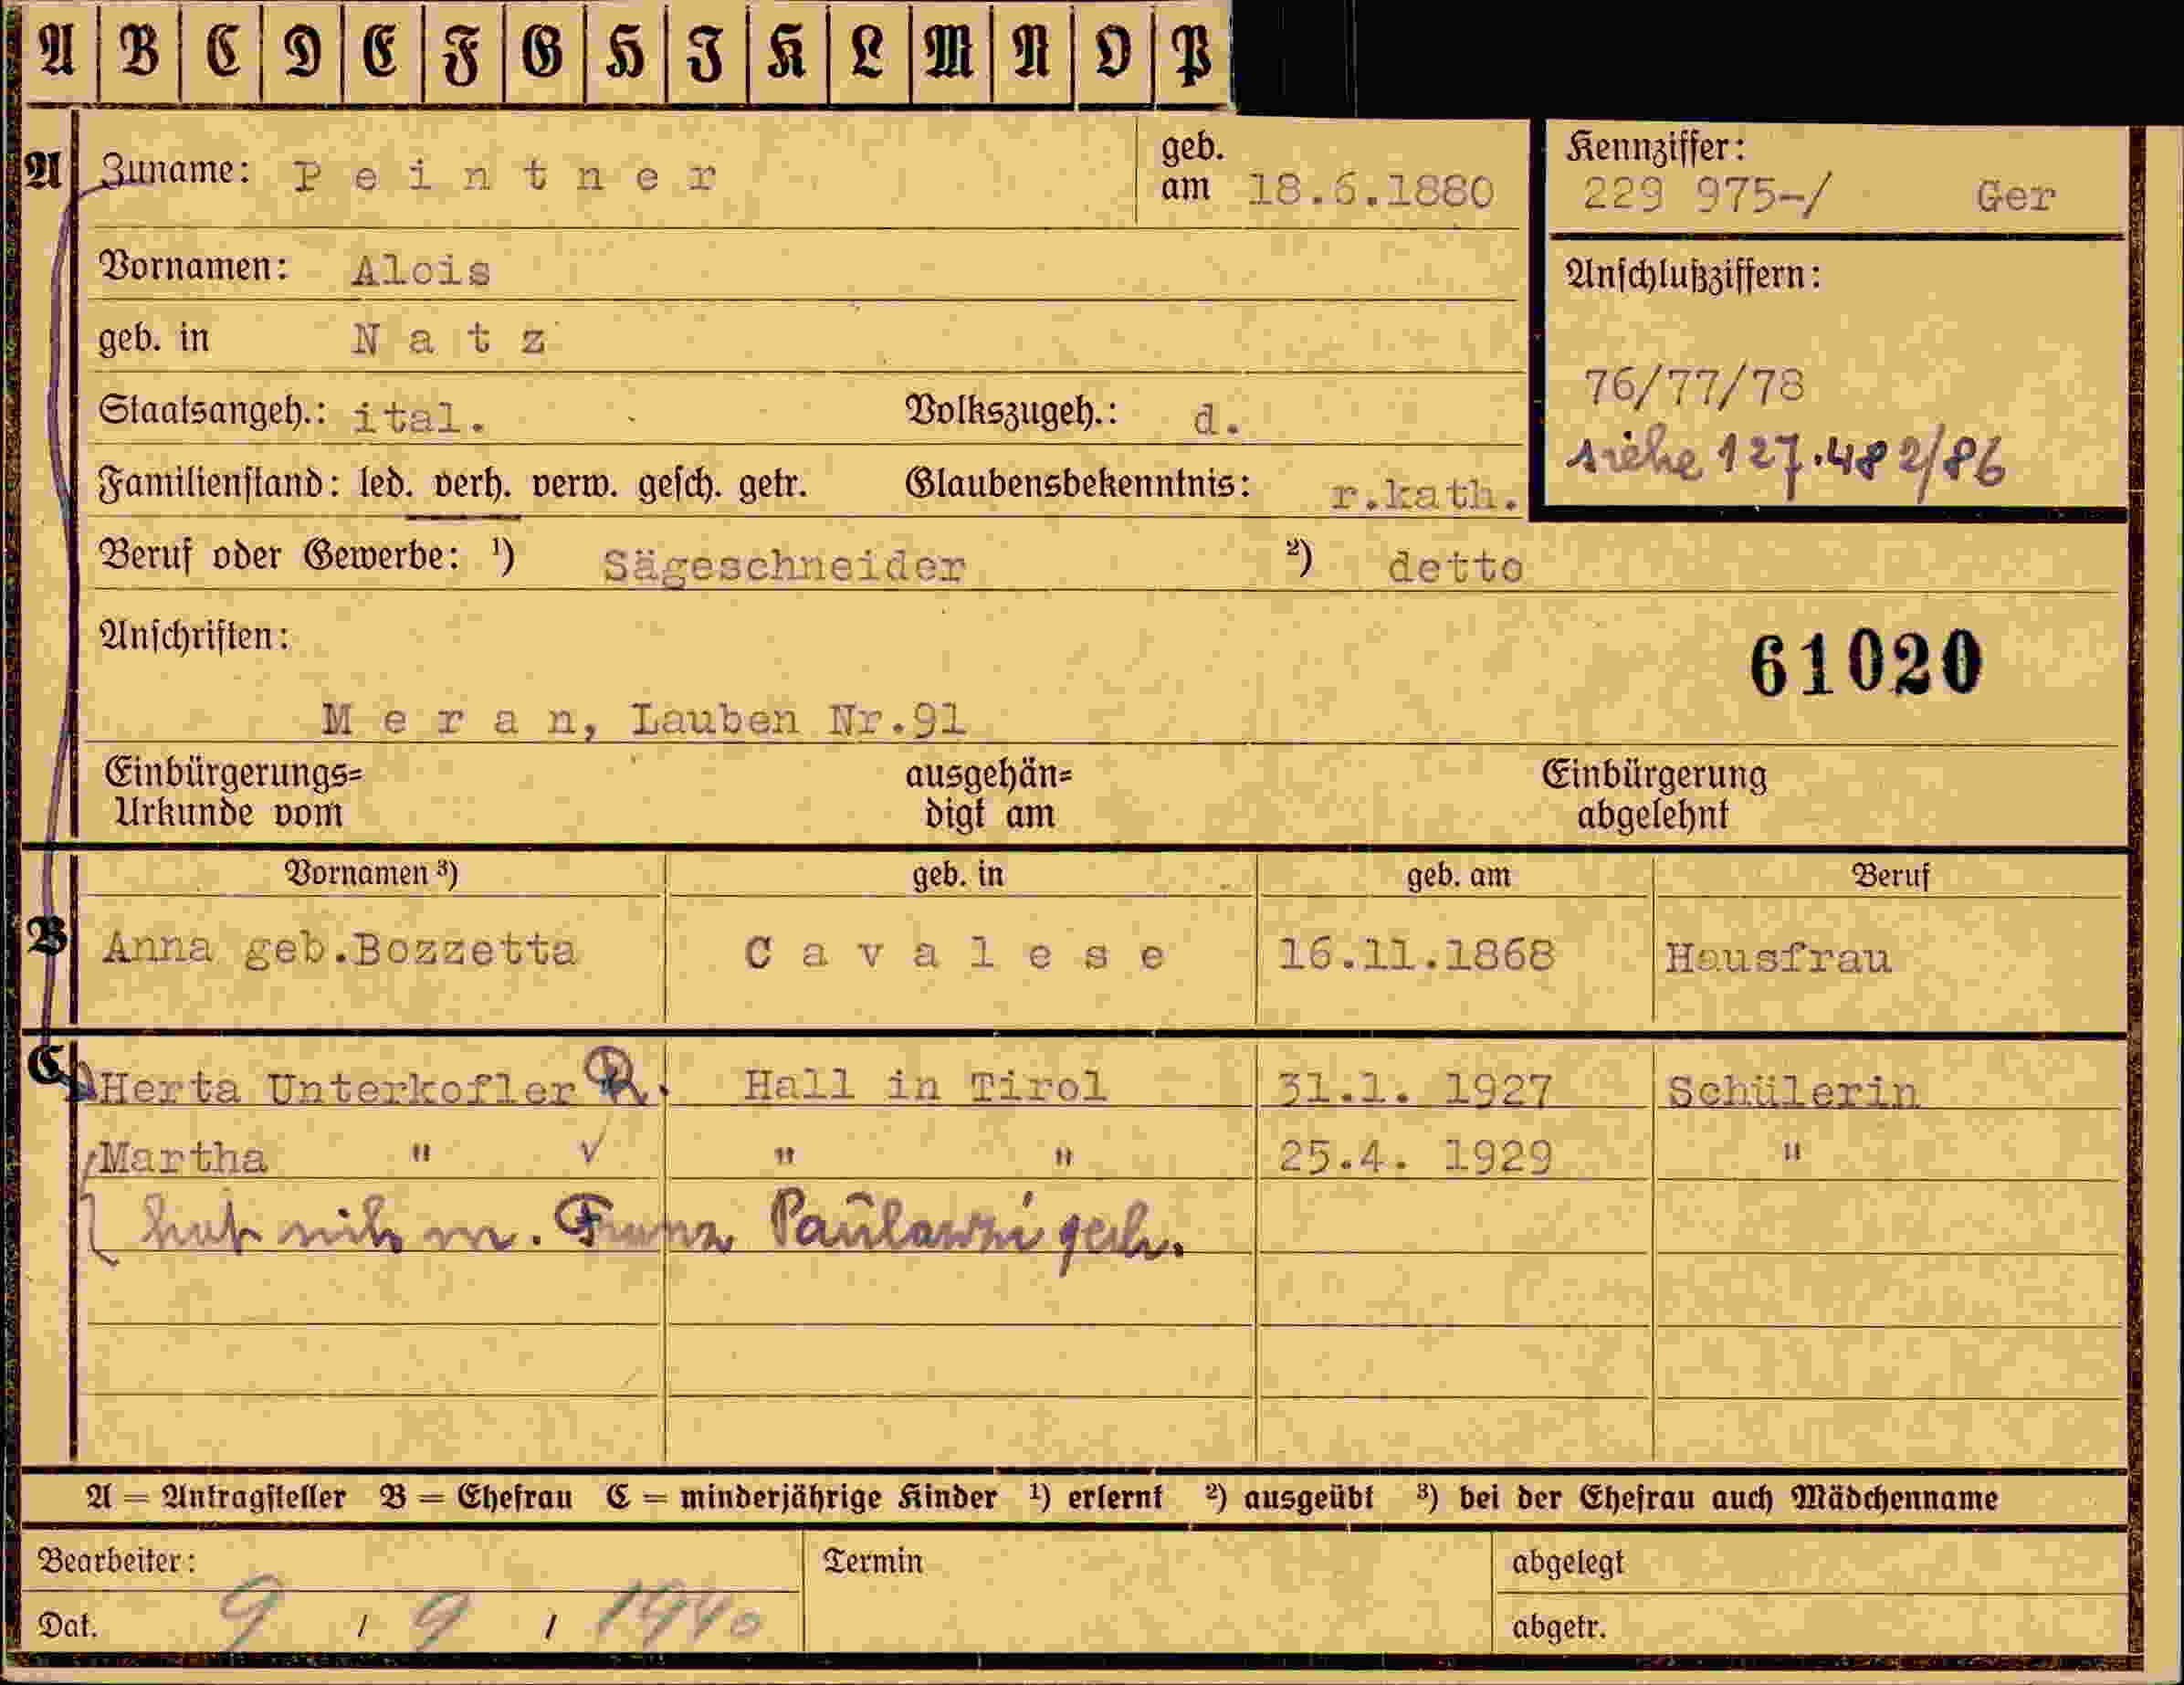 A B C D E F G H I K L M N O P
A Zuname: Peintner geb. am 18.6.1880
Kennziffer:
229 975-/ Ger
Vornamen: Alois
Anschlußziffern:
geb. in Natz
76/77/78
Staatsangeh.: ital. Volkszugeh.: d.
siehe 127.482/86
Familienstand: led. verh. verw. gesch. getr. Glaubensbekenntnis: r.kath.
Beruf oder Gewerbe: ¹) Sägeschneider ²) detto
Anschriften:
61020
Meran, Lauben Nr.91
Einbürgerungs= ausgehän= Einbürgerung
Urkunde vom digt am abgelehnt
Vornamen ³) geb. in geb. am Beruf
B Anna geb.Bozzetta Cavalese 16.11.1868 Hausfrau
C Herta Unterkofler R. Hall in Tirol 31.1. 1927 Schülerin
Martha " √ " " 25.4. 1929 "
hat sich m. Franz gesch.
A = Antragsteller B = Ehefrau C = minderjährige Kinder ¹) erlernt ²) ausgeübt ³) bei der Ehefrau auch Mädchenname
Bearbeiter: Termin abgelegt
Dat. 9 / 9 / 1940 abgetr.